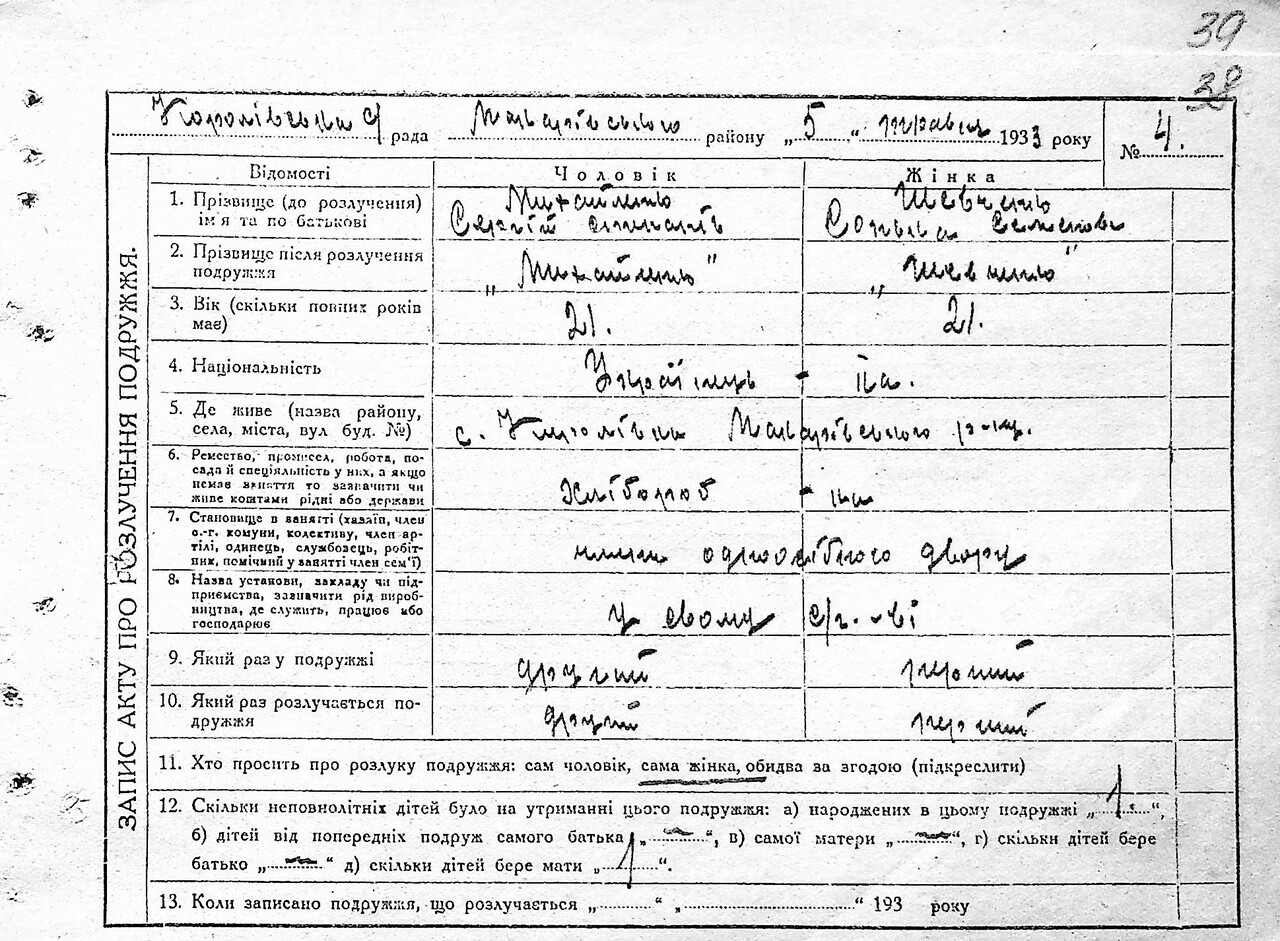 39
38
Королівська с/рада Макарівського району „5" травня 1933 року № 4.
ЗАПИС АКТУ ПРО РОЗЛУЧЕННЯ ПОДРУЖЖЯ.
Відомості Чоловік Жінка
1. Прізвище (до розлучення) Михайленко Шевченко
ім'я та по батькові Сергій Семенов
2. Прізвище після розлучення
подружжя „Михайленко" „Шевченко"
3. Вік (скільки повних років 21. 21.
має)
4. Національність Українець - ка.
5. Де живе (назва району, с. Королівка Макарівського р-ну.
села, міста, вул буд. №)
6. Ремество, промисел, робота, по-
сада й спеціяльність у них, а якщо
немає заняття то зазначити чи Хлібороб - ка
живе коштами рідні або держави
7. Становище в занятті (хазяїн, член
с.-г. комуни, колективу, член ар-
тілі, одинець, службовець, робіт- член одноосібного двору
ник, помічний у занятті член сем'ї)
8. Назва установи, закладу чи під-
приємства, зазначити рід вироб-
ництва, де служить, працює або у свому с/г.-ві
господарює
9. Який раз у подружжі другий перший
10. Який раз розлучається по- другий перший
дружжя
11. Хто просить про розлуку подружжя: сам чоловік, сама жінка, обидва за згодою (підкреслити)
12. Скільки неповнолітніх дітей було на утриманні цього подружжя: а) народжених в цьому подружжі „1.",
б) дітей від попередніх подруж самого батька „—", в) самої матери „—", г) скільки дітей бере
батько „—" д) скільки дітей бере мати „1".
13. Коли записано подружжя, що розлучається „......" „......" 193 року